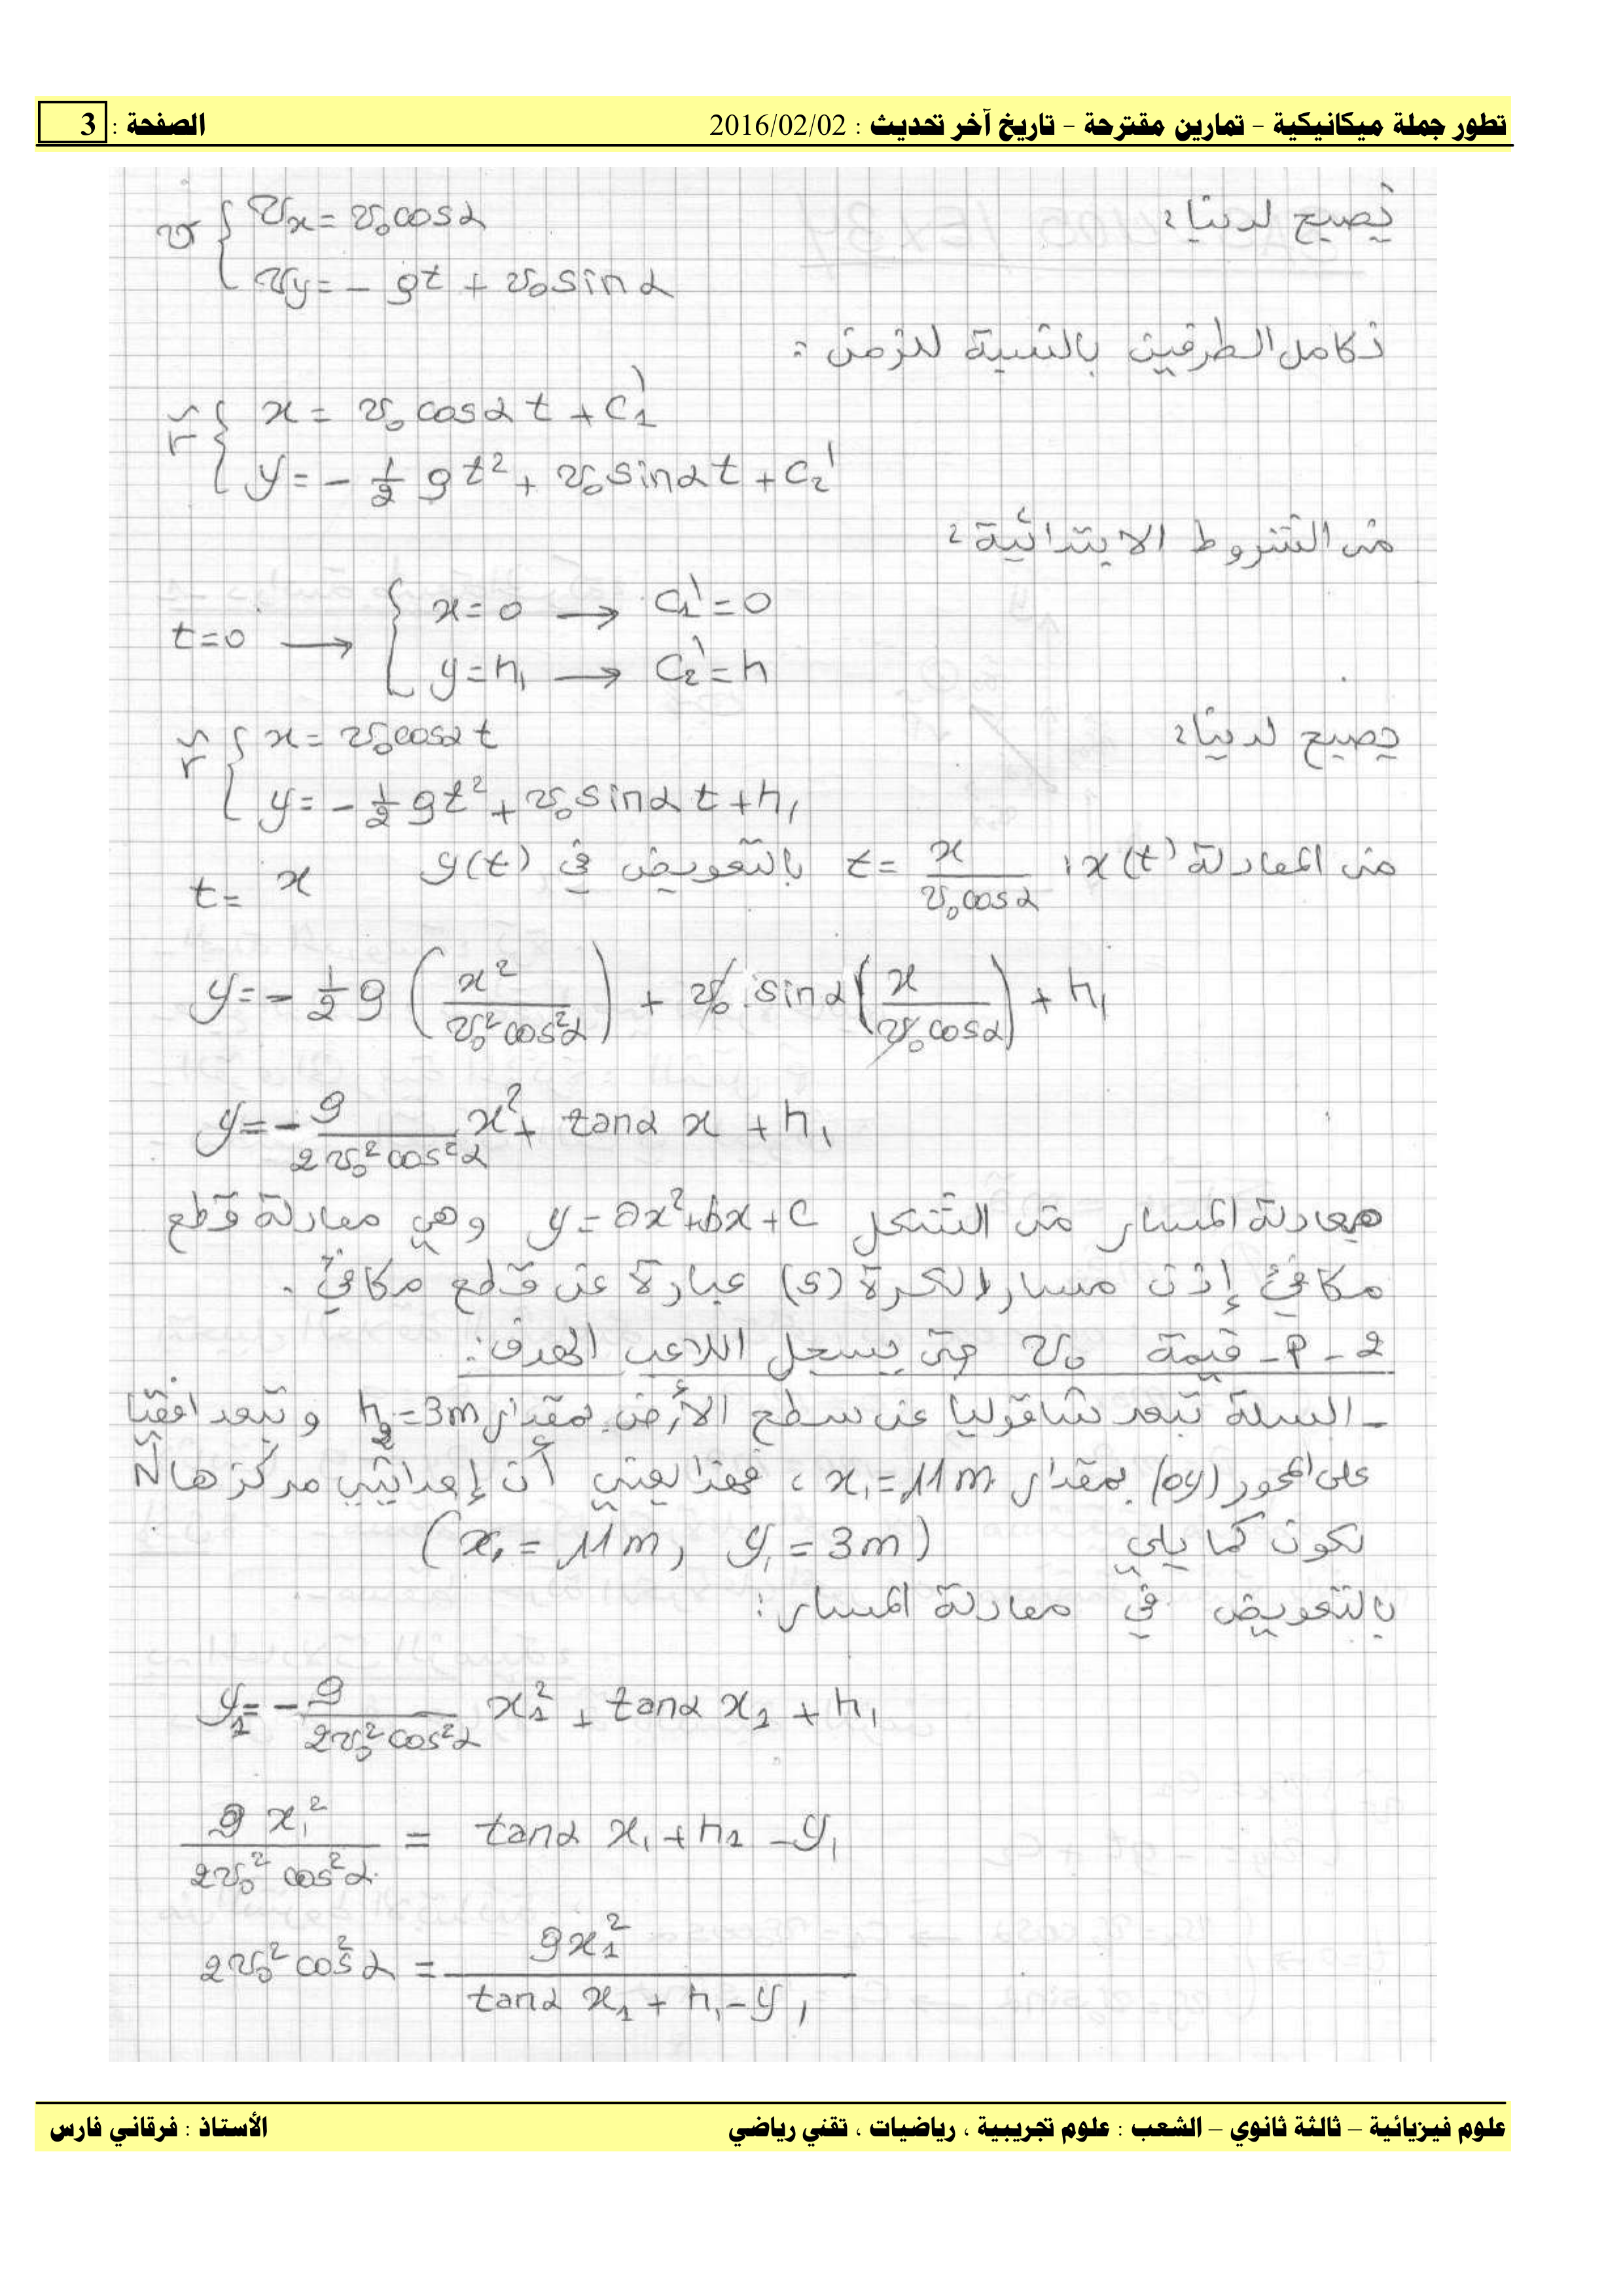 تطور جملة ميكانيكية - تمارين مقترحة - تاريخ آخر تحديث : 2016/02/02 الصفحة : 3
تصبح لدينا :
v { vx = v₀cosα
vy = - gt + v₀ sinα
نكامل الطرفين بالنسبة للزمن :
r { x = v₀ cosα t + C₁'
y = - 1/2 g t² + v₀ sinα t + C₂'
من الشروط الابتدائية :
t=0 → { x=0 → C₁'=0
y=h₁ → C₂'=h
يصبح لدينا :
r { x = v₀cosα t
y = - 1/2 gt² + v₀ sinα t + h₁
من المعادلة x(t) : t = x / (v₀cosα) بالتعويض في y(t)
t = x
y = - 1/2 g (x² / (v₀² cos²α)) + v₀ sinα (x / (v₀ cosα)) + h₁
y = - g / (2v₀² cos²α) x² + tanα x + h₁
معادلة المسار من الشكل y = ax²+bx+c وهي معادلة قطع
مكافئ إذن مسار الكرة (S) عبارة عن قطع مكافئ .
2 - أ - قيمة v₀ حتى يسجل اللاعب الهدف :
- السلة تبعد شاقوليا عن سطح الأرض بمقدار h₂ = 3m و تبعد افقيا
على المحور (oy) بمقدار x₁ = 11m ، فهذا يعني أن إحداثيي مركزها
تكون كما يلي (x₁ = 11m , y₁ = 3m)
بالتعويض في معادلة المسار :
y₁ = - g / (2v₀² cos²α) x₁² + tanα x₁ + h₁
g x₁² / (2v₀² cos²α) = tanα x₁ + h₁ - y₁
2v₀² cos²α = g x₁² / (tanα x₁ + h₁ - y₁)
علوم فيزيائية – ثالثة ثانوي – الشعب : علوم تجريبية ، رياضيات ، تقني رياضي الأستاذ : فرقاني فارس